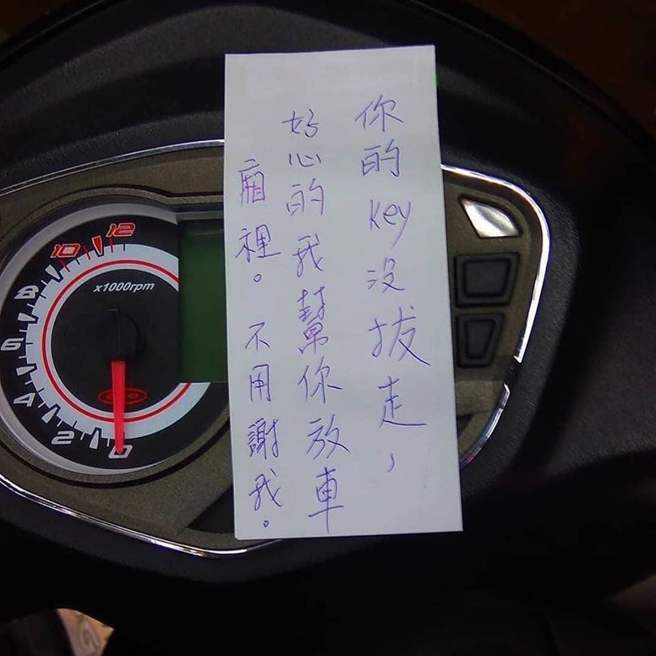 你的key沒拔走，
好心的我幫你放車
廂裡。不用謝我。
12
10
8
6
4
2
0
x1000rpm